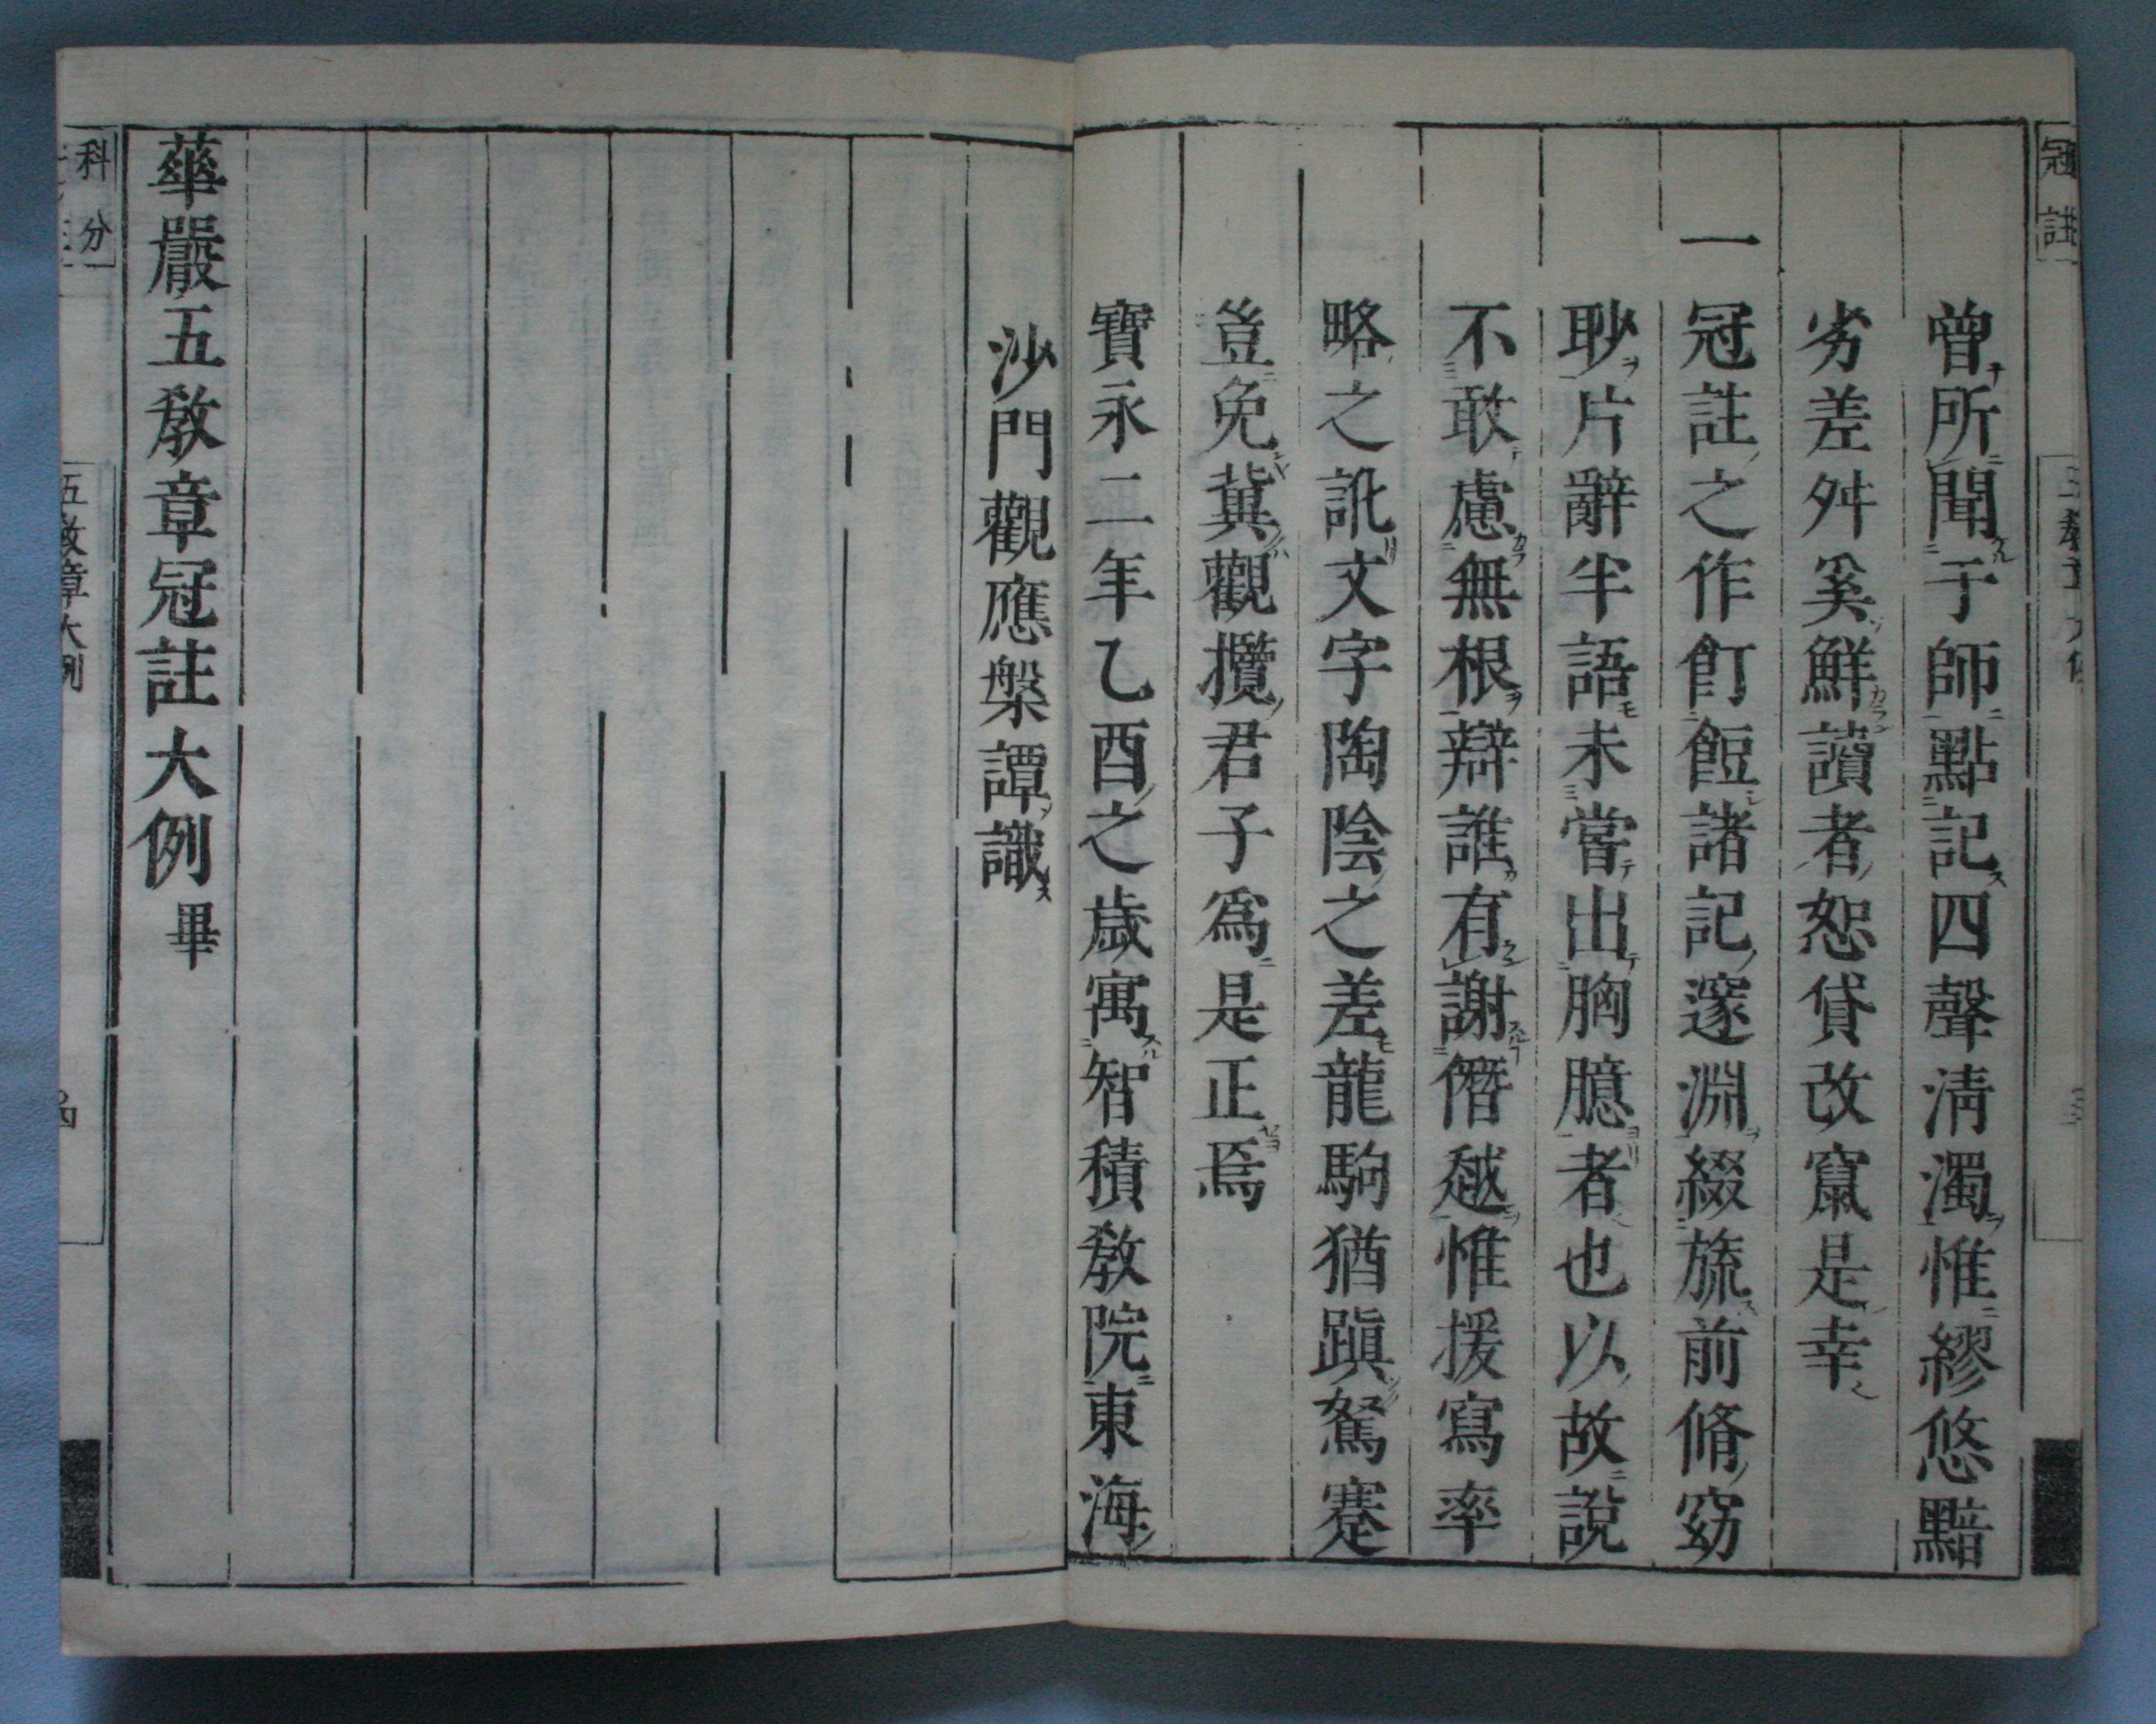 冠註
曾所聞于師點記四聲淸濁惟繆悠黯
劣差舛奚鮮讀者恕貸改竄是幸
一冠註之作飣餖諸記邃淵綴旒前脩窈
眇片辭半語未嘗出胸臆者也以故說
不敢慮無根辯誰有謝僭越惟援寫率
略之訛文字陶陰之差龍駒猶蹎駑蹇
豈免冀觀攬君子爲是正焉
寶永二年乙酉之歲寓智積敎院東海
沙門觀應槃譚識
華嚴五敎章冠註大例畢
科分
五敎章大例
四